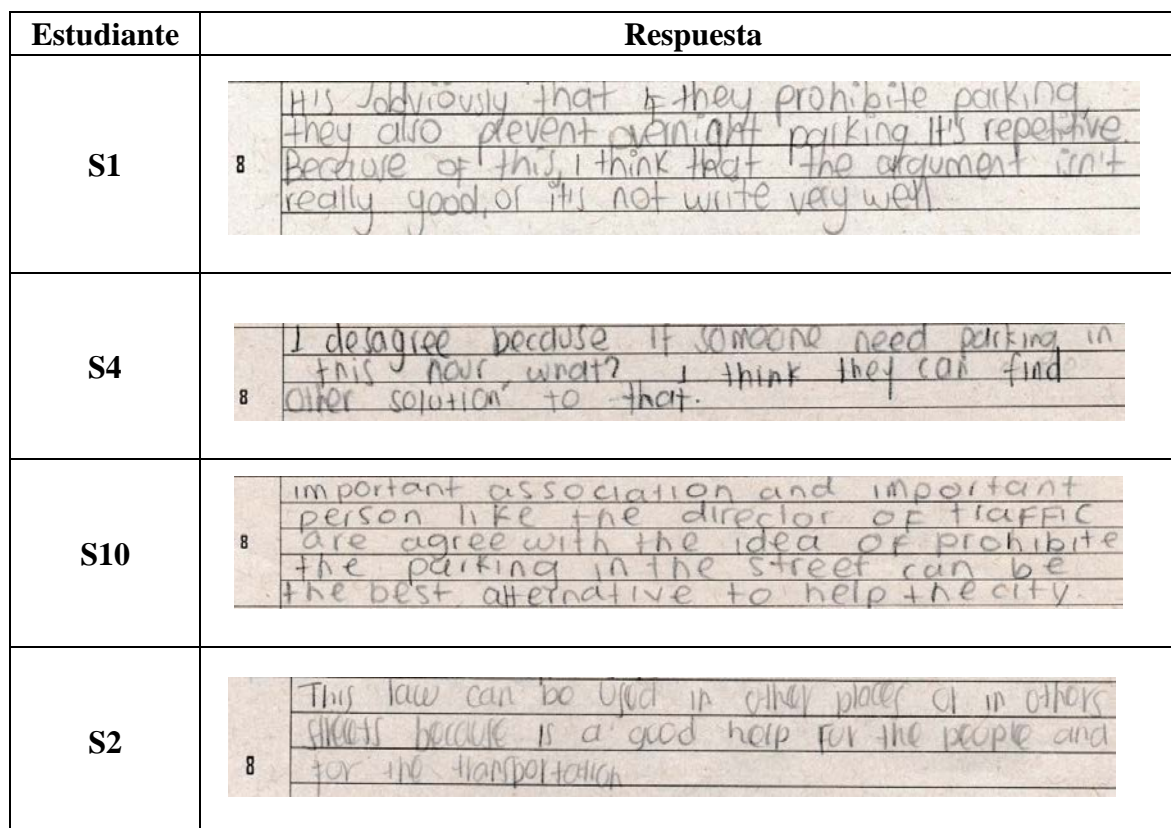 Estudiante Respuesta
S1
It's obviously that if they prohibite parking,
they also prevent overnight parking. It's repetitive.
8 Because of this, I think that the argument isn't
really good, or it's not write very well.
S4
I desagree because if someone need parking in
this hour what? I think they can find
8 other solution to that.
S10
important association and important
person like the director of traffic
8 are agree with the idea of prohibite
the parking in the street can be
the best alternative to help the city.
S2
This law can be used in other places or in others
streets because is a good help for the people and
8 for the transportation